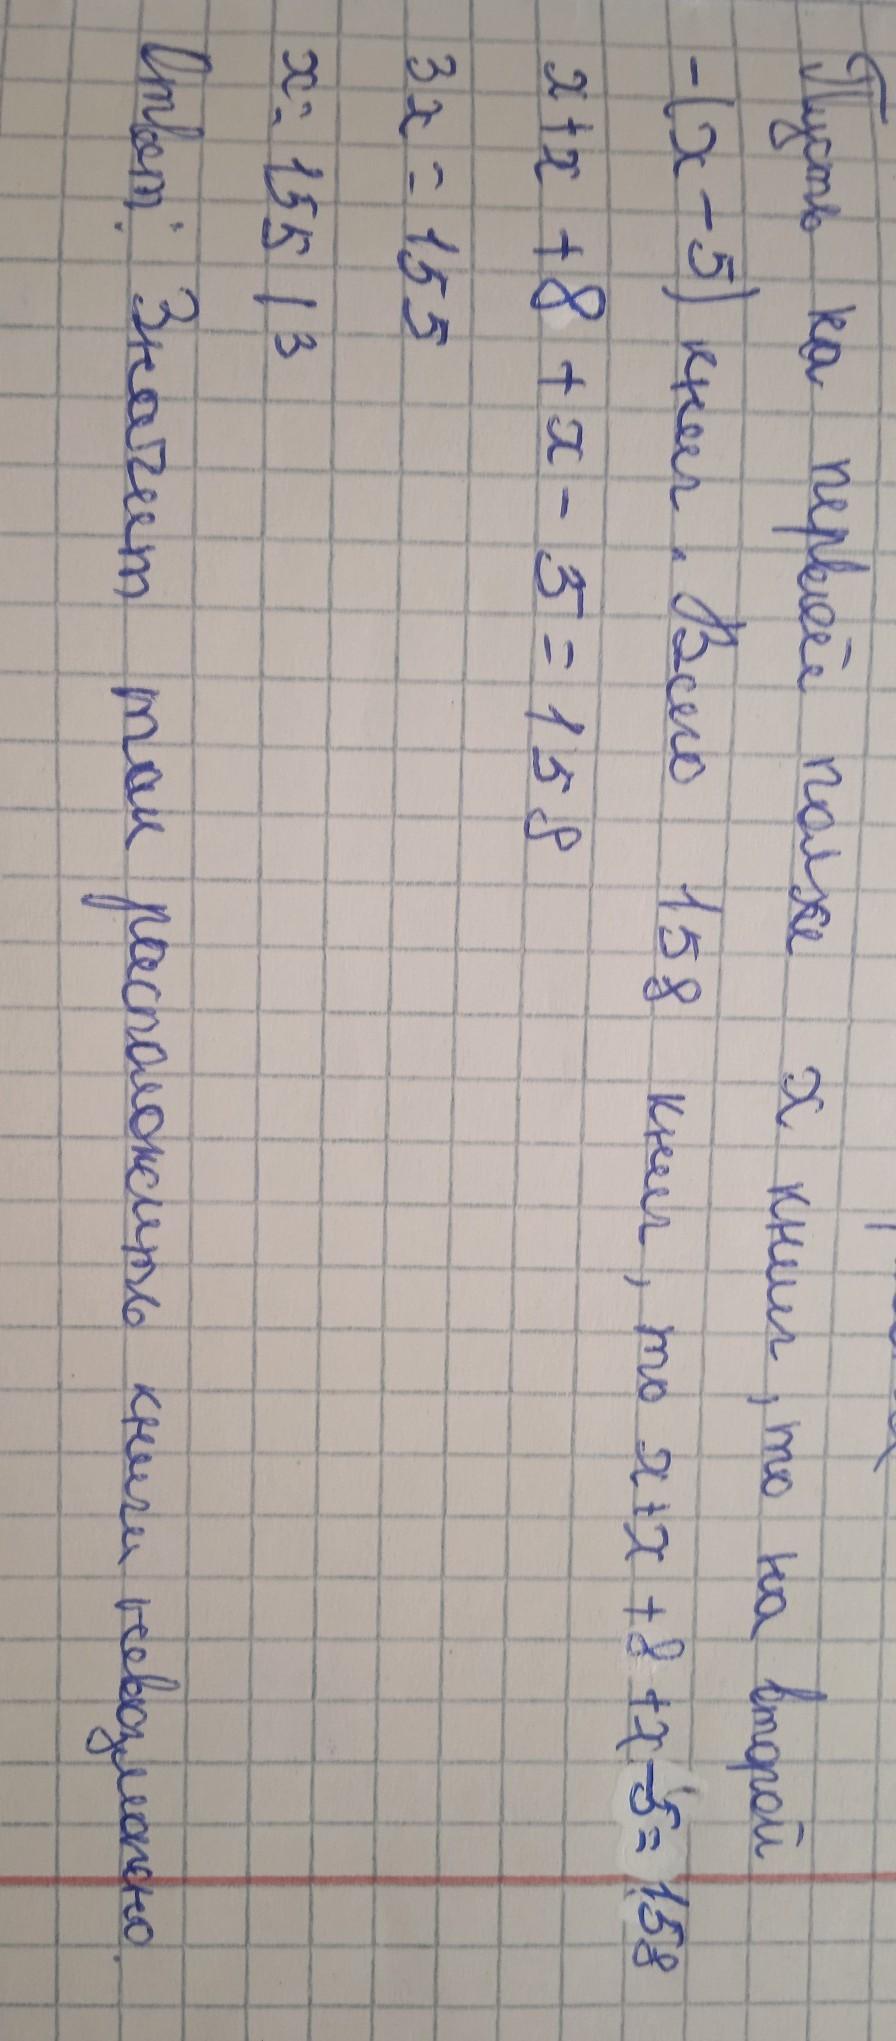 Пусть на первой полке x книг, то на второй
-(x-5) книг. Всего 158 книг, то x+x+8+x-5=158
x+x+8+x-5=158
3x=155
x=155/3
Ответ: Значит так расположить книги невозможно.